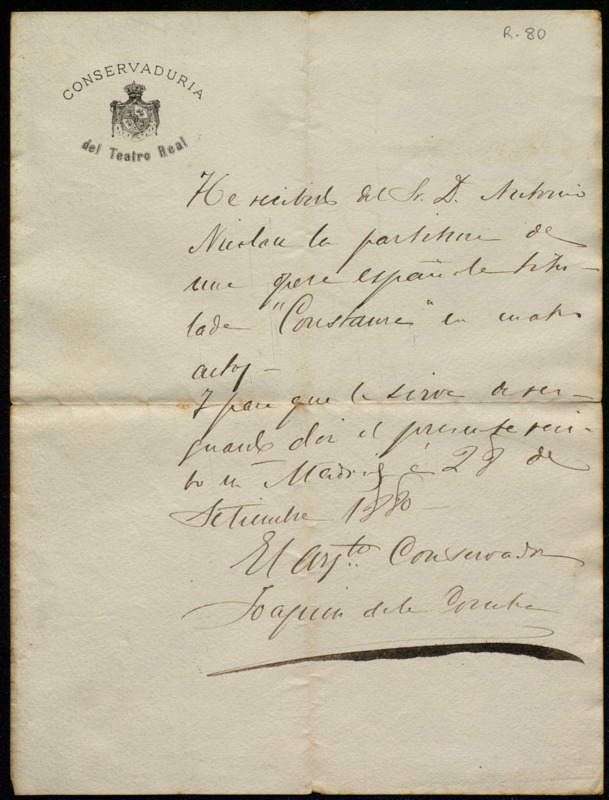 R. 80
CONSERVADURIA
del Teatro Real
He recibido del Sr. D. Antonio
Nicolau la partitura de
una opera española titu-
lada "Constanza" en cuatro
actos -
Y para que le sirva de res-
guardo doi el presente reci-
bo en Madrid á 28 de
Setiembre 1880 -
El Arq.to Conservador
Joaquin de la Concha